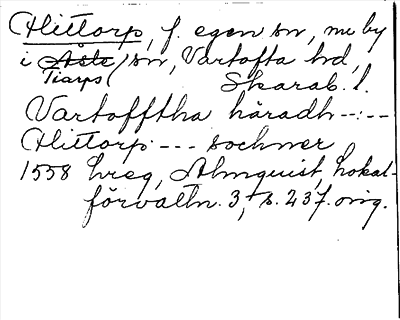 Hittorp, f. egen sn, nu by
i Åsle sn, Vartofta hd,
Tiarps Skarab. l.
Vartofftha häradh --:--
Hittorp --- sochner
1558 hreg, Almquist, Lokal-
förvaltn. 3, s. 237. orig.